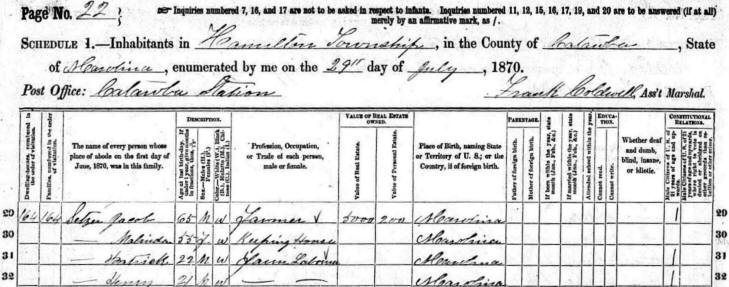 Page No. 22
☞ Inquiries numbered 7, 16, and 17 are not to be asked in respect to infants. Inquiries numbered 11, 12, 15, 16, 17, 19, and 20 are to be answered (if at all)
merely by an affirmative mark, as /.
SCHEDULE 1.—Inhabitants in Hamilton Township, in the County of Catawba, State
of N Carolina, enumerated by me on the 29th day of July, 1870.
Post Office: Catawba Station
Frank Coldwell, Ass't Marshal.
Dwelling-houses, numbered in the order of visitation.
Families, numbered in the order of visitation.
The name of every person whose place of abode on the first day of June, 1870, was in this family.
DESCRIPTION.
Age at last birth-day. If under 1 year, give months in fractions, thus,
Sex.—Males (M.), Females (F.)
Profession, Occupation, or Trade of each person, male or female.
VALUE OF REAL ESTATE OWNED.
Value of Real Estate.
Value of Personal Estate.
Place of Birth, naming State or Territory of U. S.; or the Country, if of foreign birth.
PARENTAGE.
Father of foreign birth.
Mother of foreign birth.
If born within the year, state month (Jan., Feb., &c.)
If married within the year, state month (Jan., Feb., &c.)
Attended school within the year.
EDUCATION.
Cannot read.
Cannot write.
Whether deaf and dumb, blind, insane, or idiotic.
CONSTITUTIONAL RELATIONS.
29 164 164 Setzer Jacob 65 M W Farmer 5000 200 N Carolina 1 29
30 — Malinda 55 F W Keeping House N Carolina 30
31 — 22 M W Farm Laborer N Carolina 1 31
32 — Henry 21 M W — — N Carolina 1 32